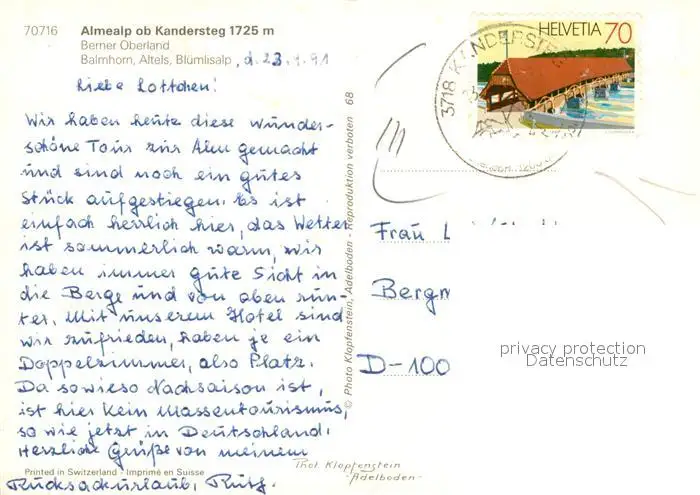 70716 Almealp ob Kandersteg 1725 m
Berner Oberland
Balmhorn, Altels, Blümlisalp, d. 23.9.91
Liebe Lottchen!
Wir haben heute diese wunder-
schöne Tour zur Alm gemacht
und sind noch ein gutes
Stück aufgestiegen. Es ist
einfach herrlich hier, das Wetter
ist sommerlich warm, wir
haben immer gute Sicht in
die Berge und von oben run-
ter. Mit unserem Hotel sind
wir zufrieden, haben je ein
Doppelzimmer, also Platz.
Da sowieso Nachsaison ist,
ist hier kein Massentourismus,
so wie jetzt in Deutschland.
Herzliche Grüße von meinem
Rucksackurlaub,
Printed in Switzerland - Imprimé en Suisse
© Photo Klopfenstein, Adelboden - Reproduktion verboten 68
HELVETIA 70
3718 KANDERSTEG
Frau L
Bergm
D-100
privacy protection
Datenschutz
Phot. Klopfenstein
-Adelboden-